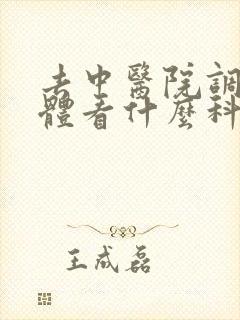 去中醫院調
體看什麼科
王成磊